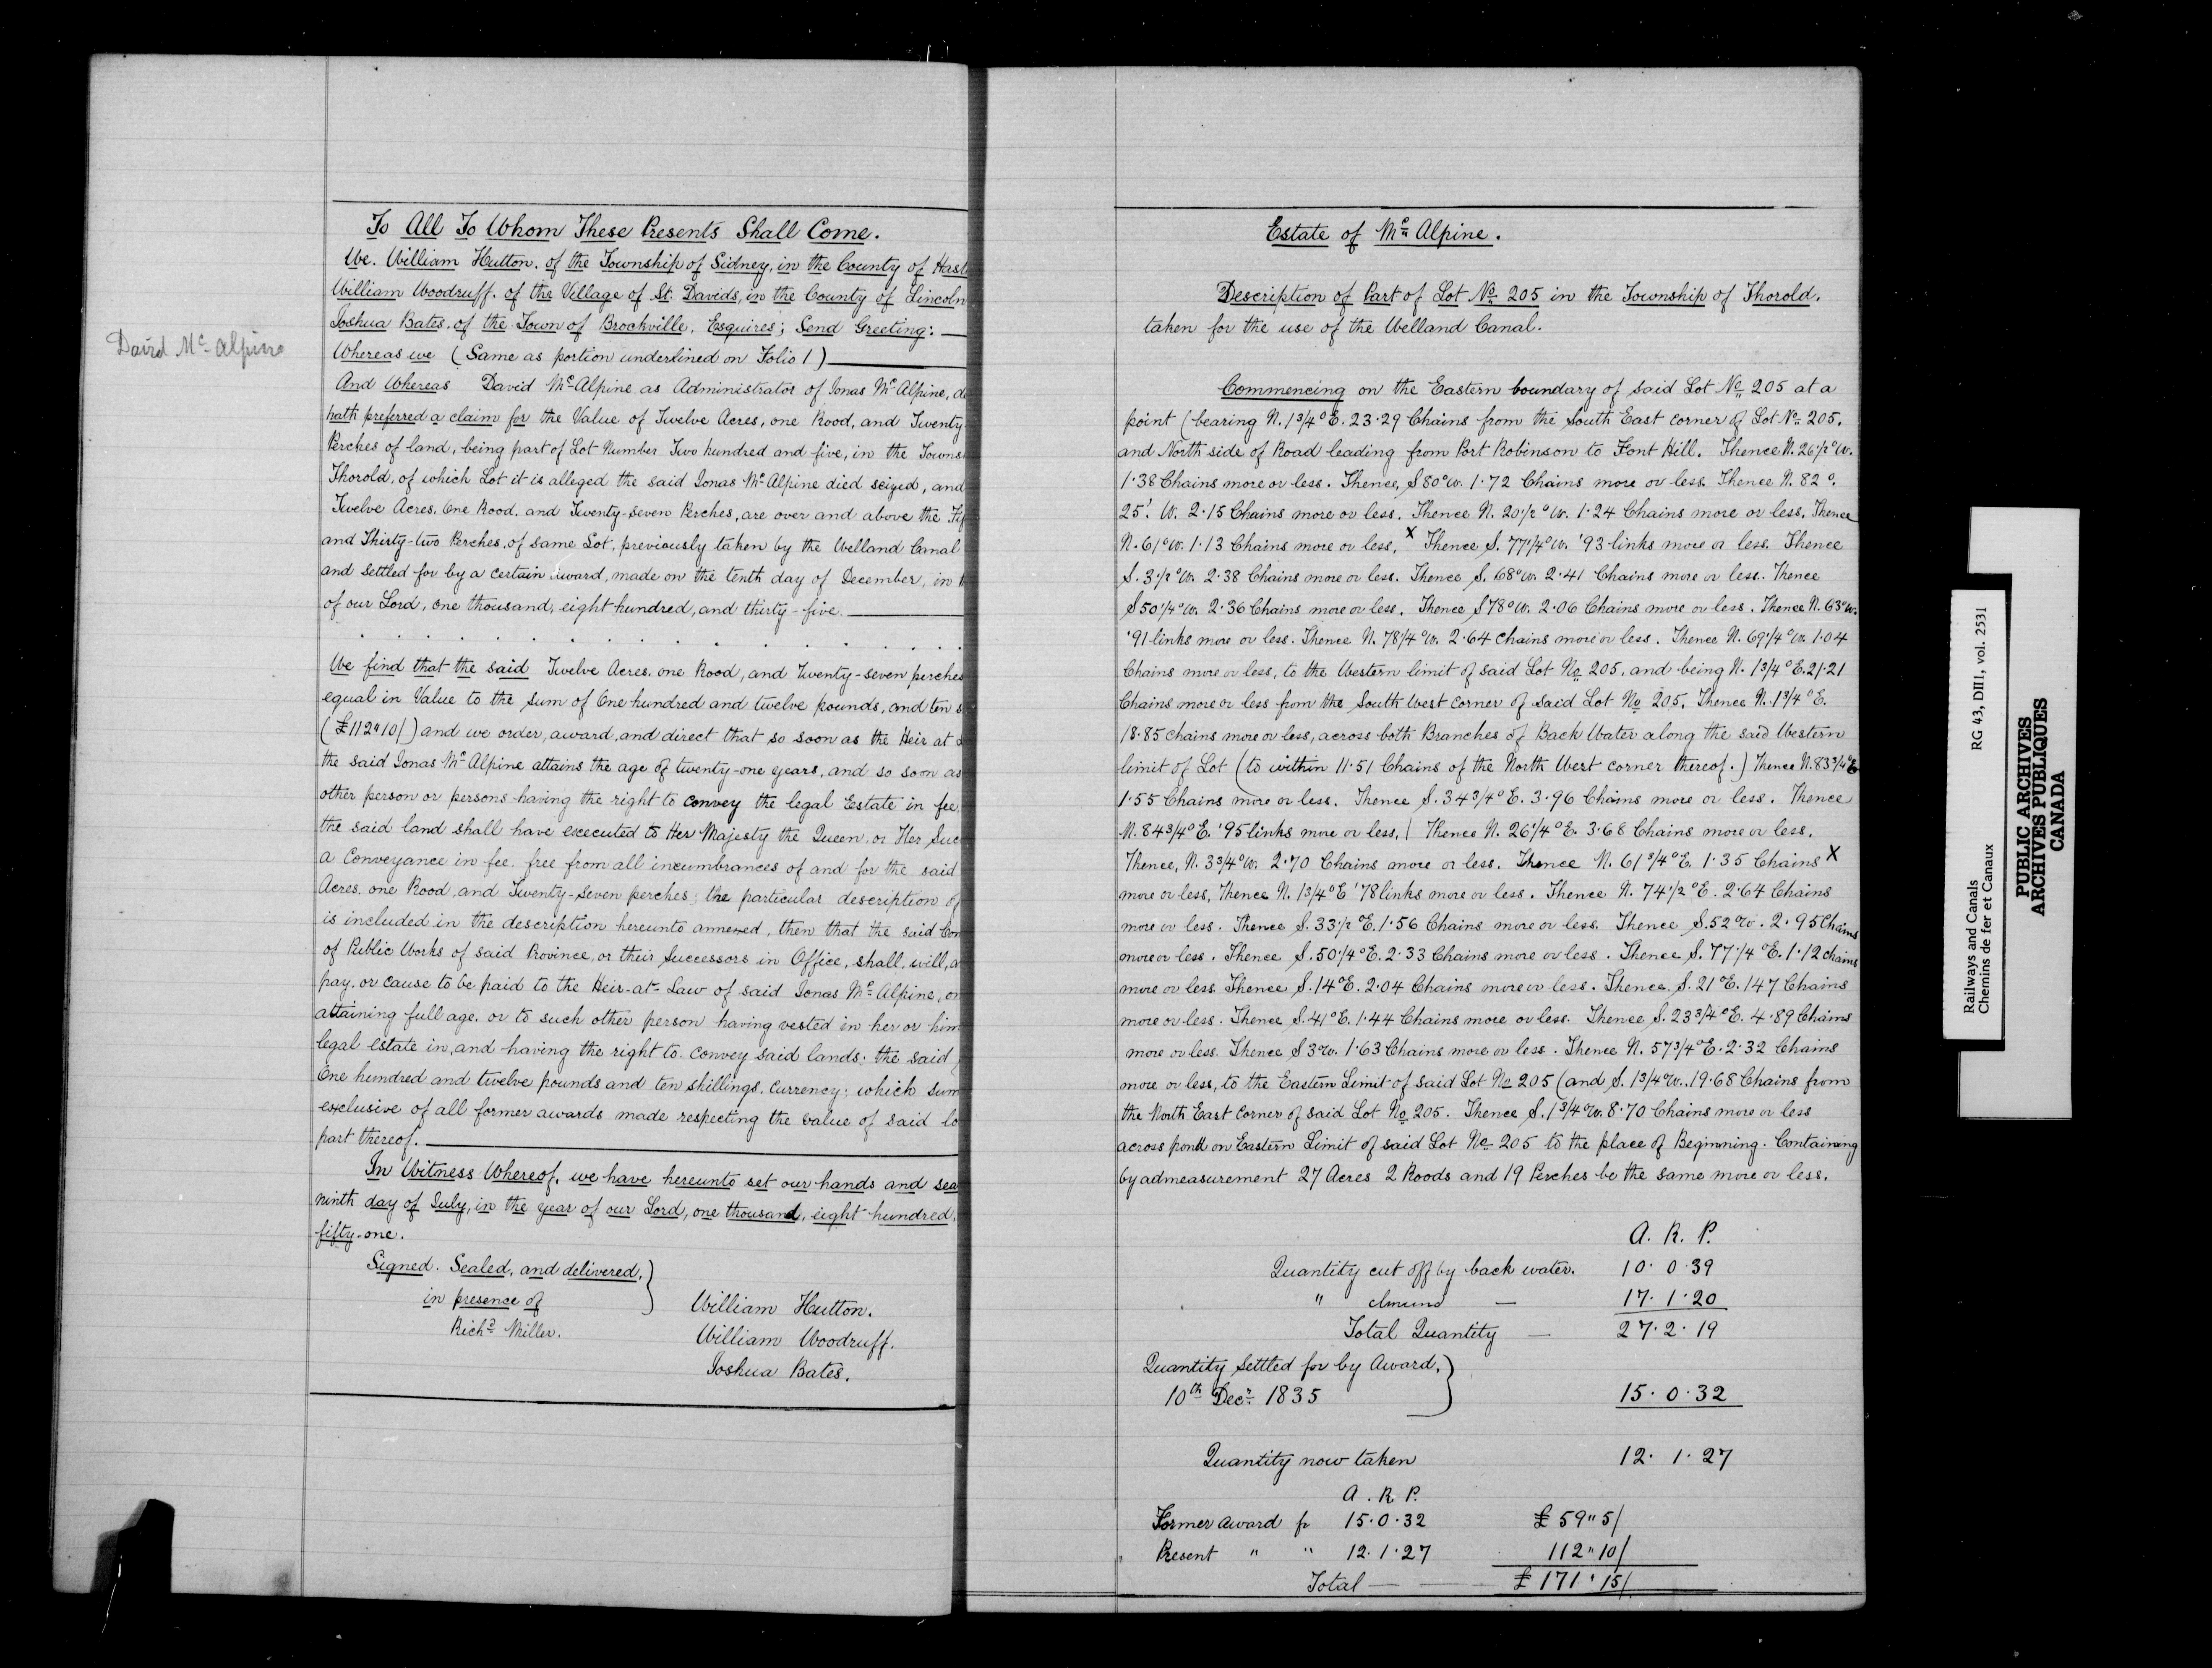 David Mc Alpine
To All To Whom These Presents Shall Come.
We. William Hutton. of the Township of Sidney, in the County of Hast
William Woodruff. of the Village of St. Davids, in the County of Lincoln
Joshua Bates. of the Town of Brockville, Esquires; Send Greeting:
Whereas we (Same as portion underlined on Folio 1)
And Whereas David Mc Alpine as Administrator of Jonas Mc Alpine, d
hath preferred a claim for the Value of Twelve Acres, one Rood, and Twenty
Perches of land, being part of Lot Number Two hundred and five, in the Towns
Thorold, of which Lot it is alleged the said Jonas Mc Alpine died seized, and
Twelve Acres. One Rood. and Twenty-seven Perches, are over and above the Fif
and Thirty-two Perches. of same Lot, previously taken by the Welland Canal
and settled for by a certain Award, made on the tenth day of December, in
of our Lord, one thousand, eight hundred, and thirty-five.
We find that the said Twelve Acres. one Rood, and Twenty-seven perches
equal in Value to the sum of One hundred and twelve pounds, and ten s
(£112"10/) and we order, award, and direct that so soon as the Heir at L
the said Jonas Mc Alpine attains the age of twenty-one years, and so soon as
other person or persons having the right to convey the legal Estate in fee
the said land shall have executed to Her Majesty the Queen. or Her Suc
a Conveyance in fee. free from all incumbrances of and for the said
Acres. one Rood. and Twenty-seven perches; the particular description of
is included in the description hereunto annexed, then that the said Com
of Public Works of said Province, or their Successors in Office, shall, will, a
pay. or cause to be paid to the Heir-at-Law of said Jonas Mc Alpine, on
attaining full age. or to such other person having vested in her or him
legal Estate in, and having the right to convey said lands; the said
One hundred and twelve pounds and ten shillings. currency; which sum
exclusive of all former awards made respecting the value of said lo
part thereof.
In Witness Whereof. we have hereunto set our hands and sea
ninth day of July, in the year of our Lord, one thousand, eight hundred,
fifty-one.
Signed. Sealed, and delivered, }
in presence of
Richd Miller.
William Hutton.
William Woodruff.
Joshua Bates.
Estate of Mc Alpine.
Description of Part of Lot No 205 in the Township of Thorold.
taken for the use of the Welland Canal.
Commencing on the Eastern boundary of said Lot No 205 at a
point (bearing N. 1 3/4° E. 23·29 Chains from the South East corner of Lot No 205.
and North side of Road leading from Port Robinson to Font Hill. Thence N. 26 1/2° W.
1·38 Chains more or less. Thence, S 80° W. 1·72 Chains more or less. Thence N. 82°.
25'. W. 2·15 Chains more or less. Thence N. 20 1/2° W. 1·24 Chains more or less. Thence
N. 61° W. 1·13 Chains more or less, X Thence S. 77 1/4° W. '93 links more or less. Thence
S. 3 1/2° W. 2·38 Chains more or less. Thence S. 68° W. 2·41 Chains more or less. Thence
S 50 1/4° W. 2·36 Chains more or less. Thence S 78° W. 2·06 Chains more or less. Thence N. 63° W.
'91 links more or less. Thence N. 78 1/4° W. 2·64 Chains more or less. Thence N. 69 1/4° W. 1·04
Chains more or less, to the Western limit of said Lot No 205, and being N. 1 3/4° E. 21·21
Chains more or less from the South West corner of said Lot No 205. Thence N. 1 3/4° E.
18·85 chains more or less, across both Branches of Back Water along the said Western
limit of Lot (to within 11·51 Chains of the North West corner thereof.) Thence N. 83 3/4° E
1·55 Chains more or less. Thence S. 34 3/4° E. 3·96 Chains more or less. Thence
N. 84 3/4° E. '95 links more or less, | Thence N. 26 1/4° E. 3·68 Chains more or less.
Thence, N. 3 3/4° W. 2·70 Chains more or less. Thence N. 61 3/4° E. 1·35 Chains X
more or less, Thence N. 1 3/4° E '78 links more or less. Thence N. 74 1/2° E. 2·64 Chains
more or less. Thence S. 33 1/2° E. 1·56 Chains more or less. Thence S. 52° W. 2·95 Chains
more or less. Thence S. 50 1/4° E. 2·33 Chains more or less. Thence S. 77 1/4° E. 1·12 chains
more or less. Thence S. 14° E. 2·04 Chains more or less. Thence. S. 21° E. 1·47 Chains
more or less. Thence S. 41° E. 1·44 Chains more or less. Thence S. 23 3/4° E. 4·89 Chains
more or less. Thence S 3° W. 1·63 Chains more or less. Thence N. 57 3/4° E. 2·32 Chains
more or less, to the Eastern Limit of said Lot No 205 (and S. 1 3/4° W. 19·68 Chains from
the North East Corner of said Lot No 205. Thence S. 1 3/4° W. 8·70 Chains more or less
across pond on Eastern Limit of said Lot No 205 to the place of Beginning. Containing
by admeasurement 27 Acres 2 Roods and 19 Perches be the same more or less.
A. R. P.
Quantity cut off by back water. 10· 0·39
" — 17·1·20
Total Quantity — 27·2·19
Quantity Settled for by Award, }
10th Decr 1835 15·0·32
Quantity now taken 12·1·27
A. R. P.
Former award fr 15·0·32 £59"5/
Present " " 12·1·27 112"10/
Total — £171"15/
Railways and Canals RG 43, DIII, vol. 2531
Chemins de fer et Canaux
PUBLIC ARCHIVES
ARCHIVES PUBLIQUES
CANADA